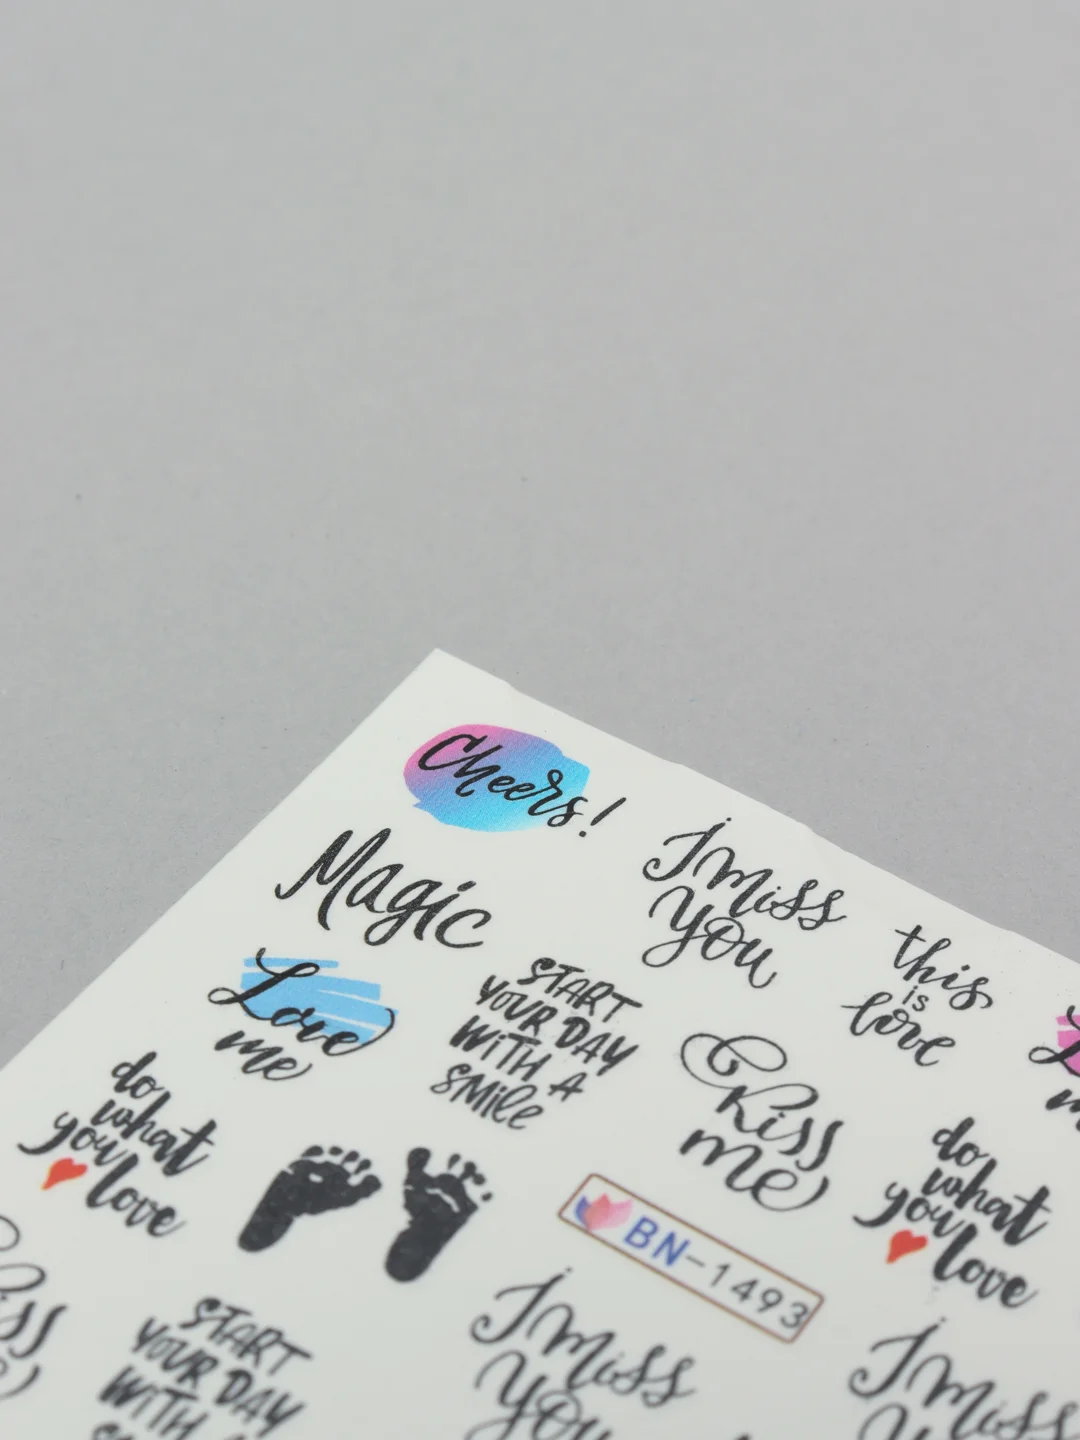 Cheers!
Magic
I miss
you
this
is
love
Love
me
START
YOUR DAY
WITH A
SMile
Kiss
me
do
what
you
love
do
what
you
love
BN-1493
START
YOUR DAY
WITH A
I miss
You
I miss